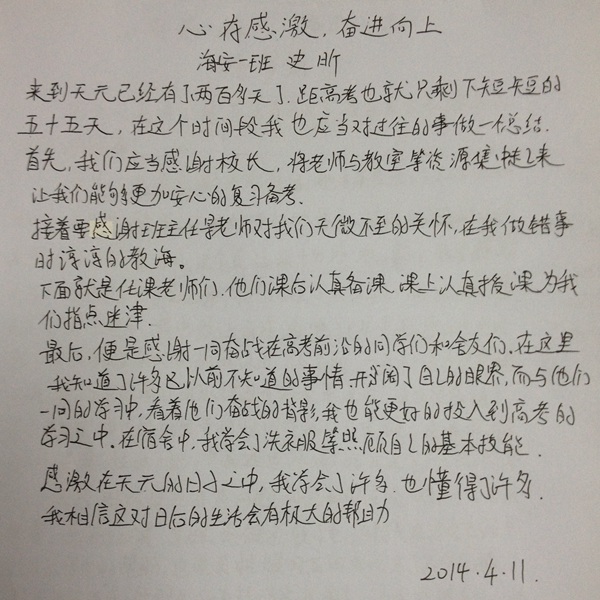 心存感激，奋进向上
海安一班 史昕
来到天元已经有了两百多天了.距高考也就只剩下短短的
五十五天，在这个时间段我也应当对过往的事做一个总结.
首先，我们应当感谢校长，将老师与教室等资源集中起来
让我们能够更加安心的复习备考.
接着要感谢班主任景老师对我们无微不至的关怀，在我做错事
时谆谆的教海。
下面就是任课老师们，他们课后认真备课 课上认真授课为我
们指点迷津.
最后，便是感谢一同奋战在高考前沿的同学们和舍友们，在这里
我知道了许多已以前不知道的事情 开阔了自己的眼界，而与他们
一同的学习中，看着他们奋战的背影，我也能更好的投入到高考的
学习之中.在宿舍中，我学会了洗衣服等照顾自己的基本技能.
感激在天元的日子之中，我学会了许多.也懂得了许多.
我相信这对日后的生活会有极大的帮助
2014.4.11.